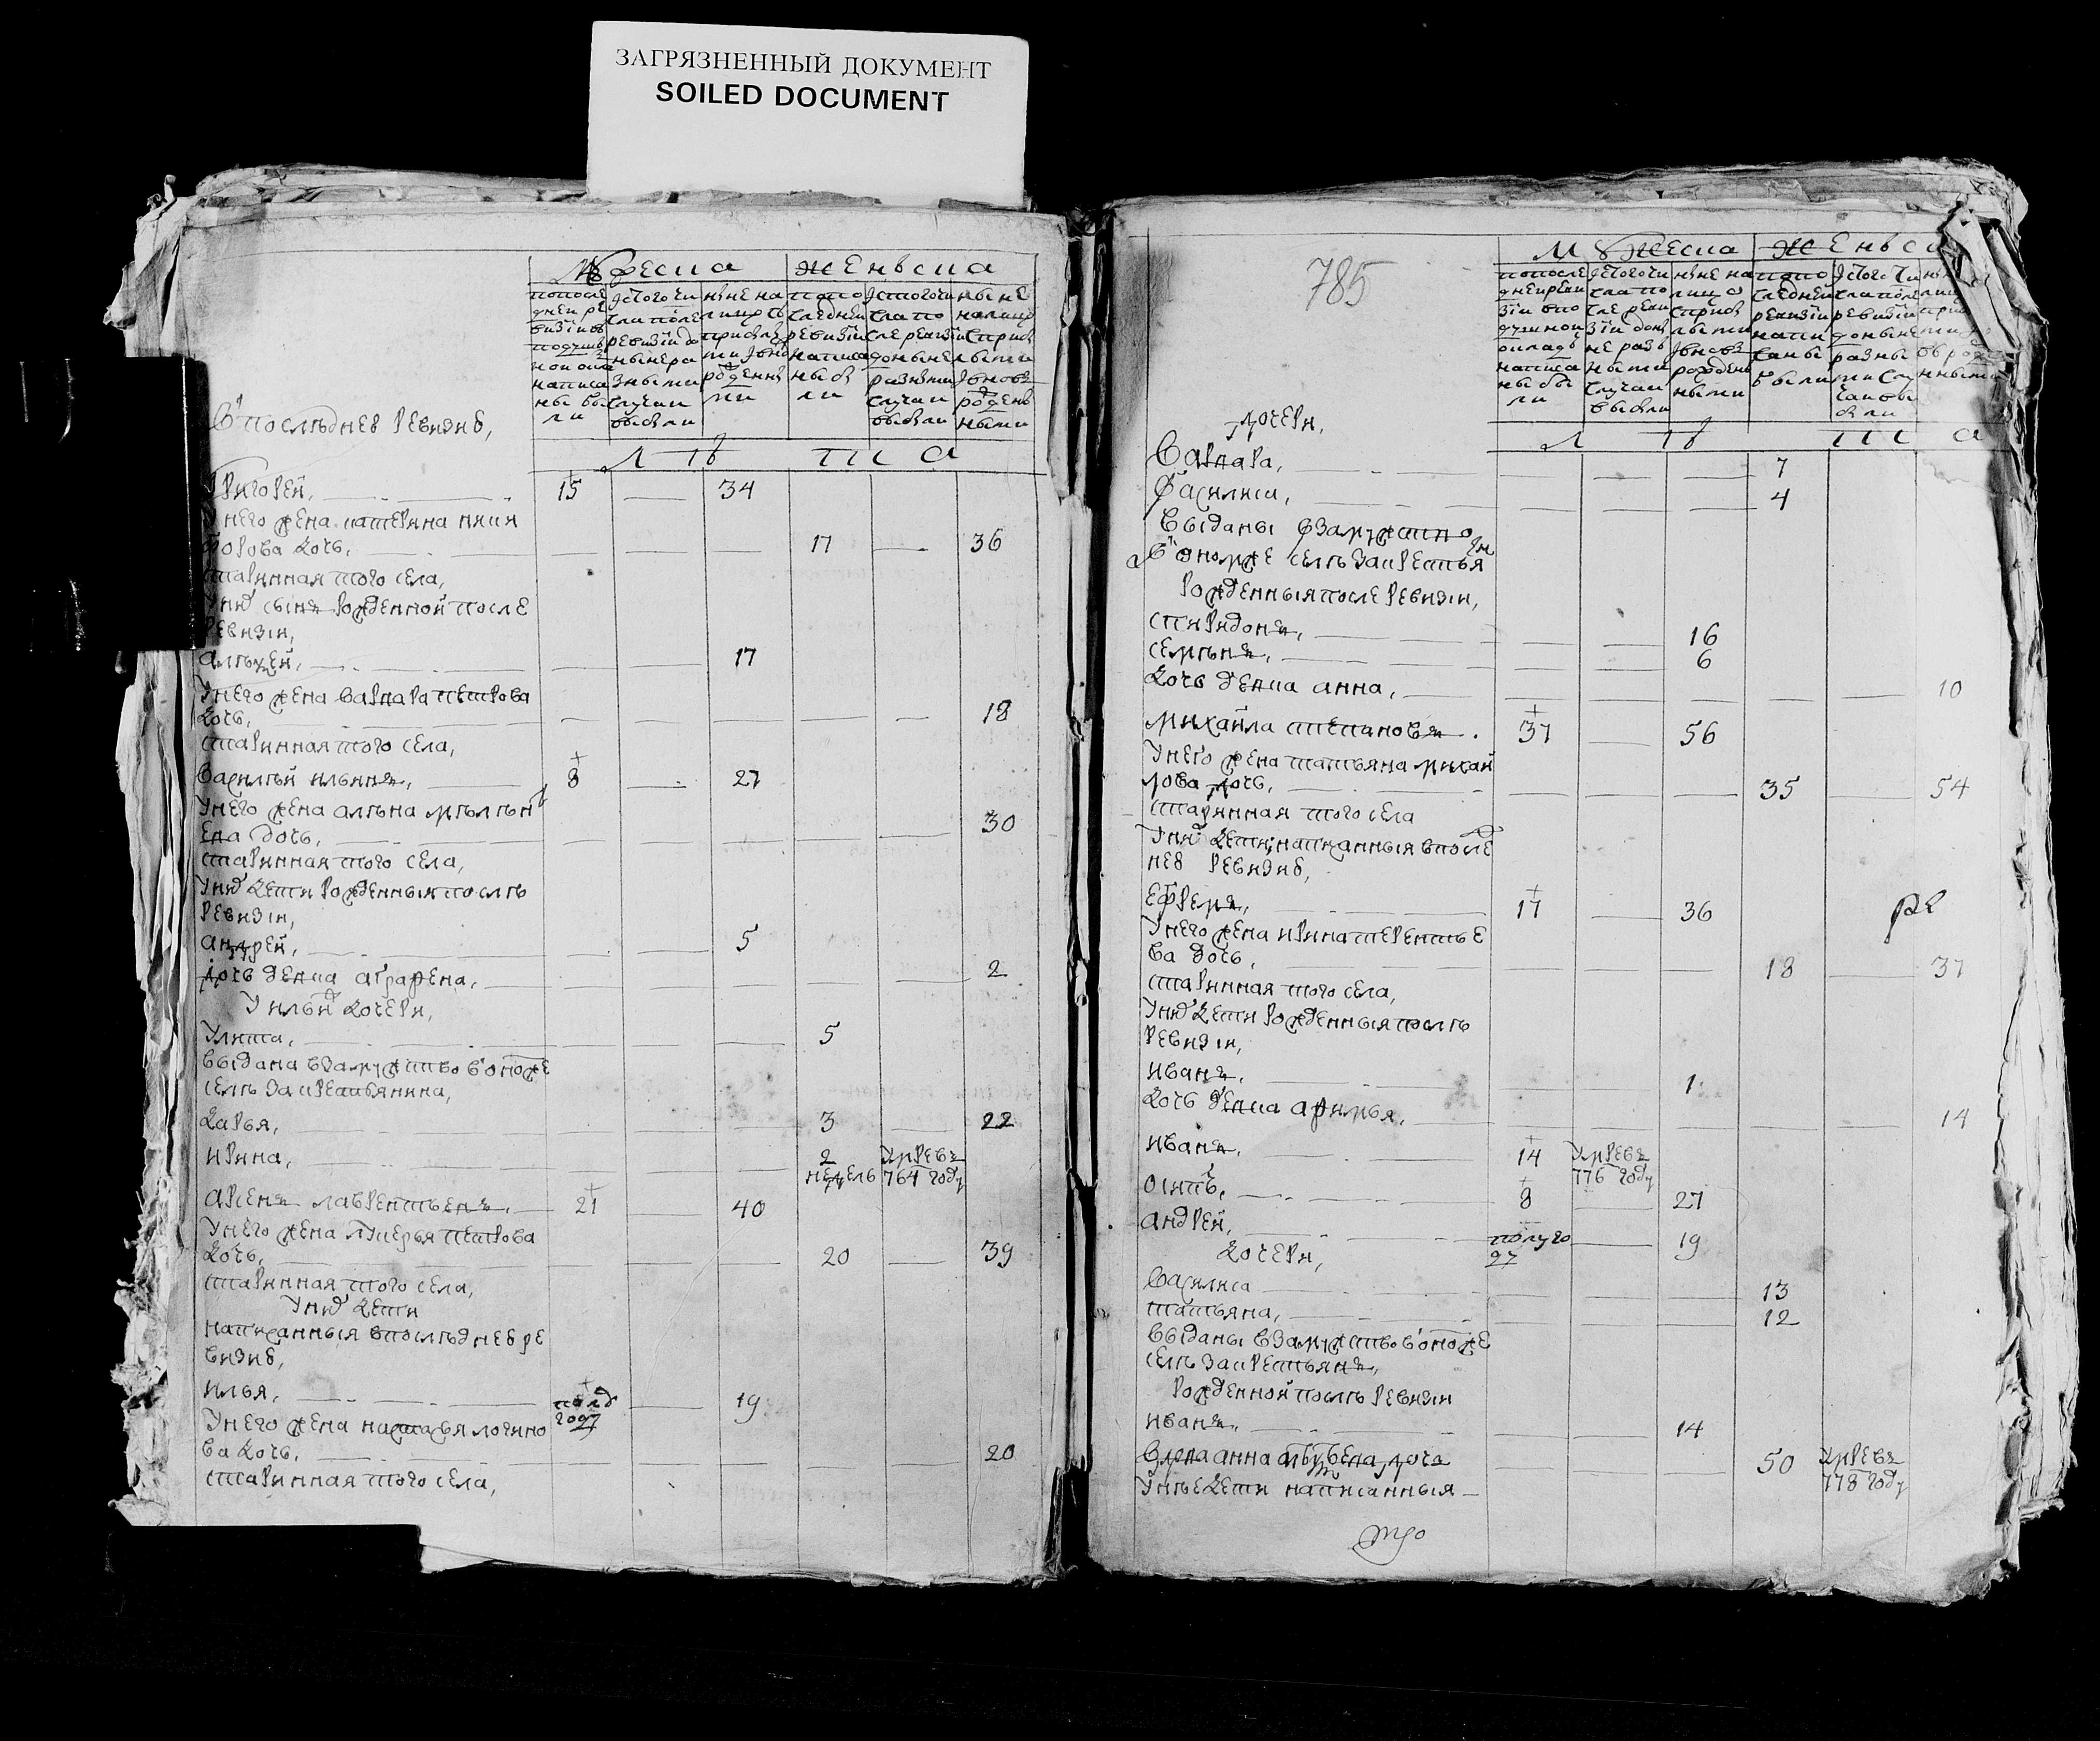 ЗАГРЯЗНЕННЫЙ ДОКУМЕНТ
SOILED DOCUMENT
Мужеска женъска
попосле дней ревизіи в подушной окладъ написаны были
ис того числа после ревизіи до ныне разными случаи выбыли
ныне на лицо с прибылыми и вновь рожденными
по последней ревизіи написаны были
ис того числа после ревизіи до ныне разными случаи выбыли
ныне на лицо с прибылыми и вновь рожденными
в последнеѣ ревизиѣ,
лѣта
Григорей, 15 34
у него жена катерина
дочь, 17 36
старинная того села,
у них сынъ рожденной после
ревизіи,
алѣѯей, 17
у него жена варвара петрова
дочь, 18
старинная того села,
василѣй ильинъ, 8 27
у него жена алѣна
ева дочь, 30
старинная того села,
у них дети рожденныя послѣ
ревизіи,
андрей, 5
дочь девка аграфена, 2
у ильи дочери,
улита, 5
выдана взамужство в оном же
селѣ за крестьянина,
дарья, 3 22
ирина, 2 недель умре въ 764 году
арсенъ лаврентьевъ, 21 40
у него жена лукерья петрова
дочь, 20 39
старинная того села,
у них дети
написанныя в послѣднеѣ ре
визиѣ,
илья, полгода 19
у него жена настасья логино
ва дочь, 20
старинная того села,
785
мужеска женъска
попосле дней ревизіи в подушной окладъ написаны были
ис того числа после ревизіи доныне разными случаи выбыли
ныне на лицо с прибылыми и вновь рожденными
по последней ревизіи написаны были
ис того числа после ревизіи доныне разными случаи выбыли
лѣта
дочери,
варвара, 7
василиса, 4
выданы взамужство
в оном же селѣ за крестья
рожденныя после ревизіи,
спиридонъ, 16
семенъ, 6
дочь девка анна, 10
михайла степановъ. 37 56
у него жена татьяна михай
лова дочь, 35 54
старинная того села
у них дети, написанныя в после
неѣ ревизиѣ,
ефремъ, 17 36
у него жена ирина терентье
ва дочь, 18 37
старинная того села,
у них дети рожденныя послѣ
ревизіи,
иванъ. 1
дочь девка афимья. 14
иванъ. 14 умре въ 776 году
осипъ, 8 27
андрей, полуго 19
дочери,
василиса 13
татьяна, 12
выданы взамужство в оном же
селѣ за крестьянъ,
рожденной послѣ ревизіи
иванъ. 14
вдова анна дочь 50 умре въ 778 году
у нее дети написанныя